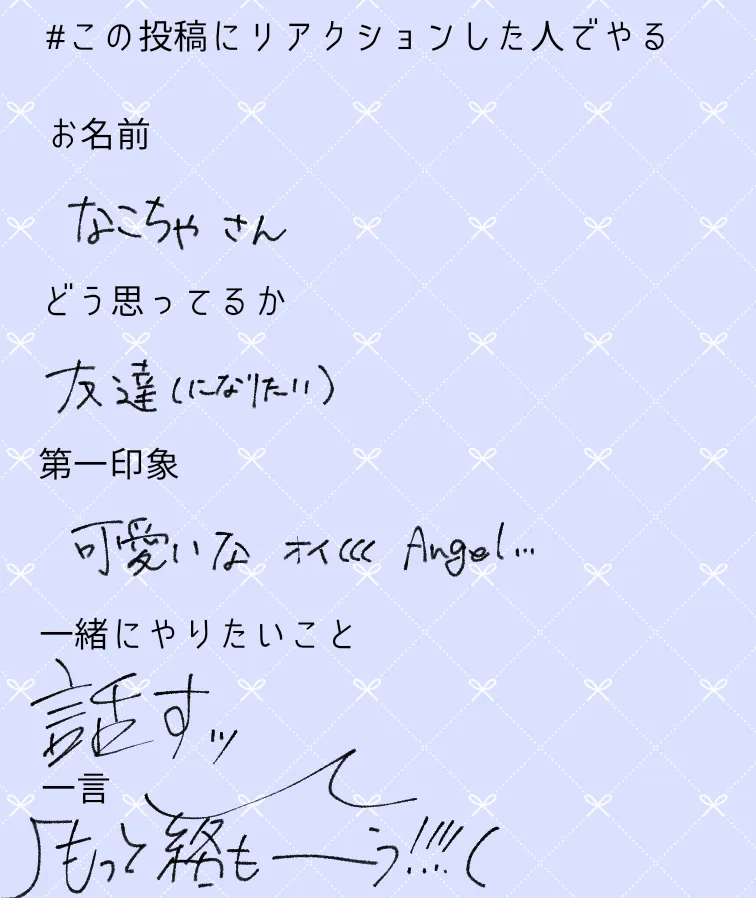 #この投稿にリアクションした人でやる
お名前
なこちゃ さん
どう思ってるか
友達(になりたい)
第一印象
可愛いな オイ<<< Angel…
一緒にやりたいこと
話すッ
一言
もっと絡も――う!!!!(